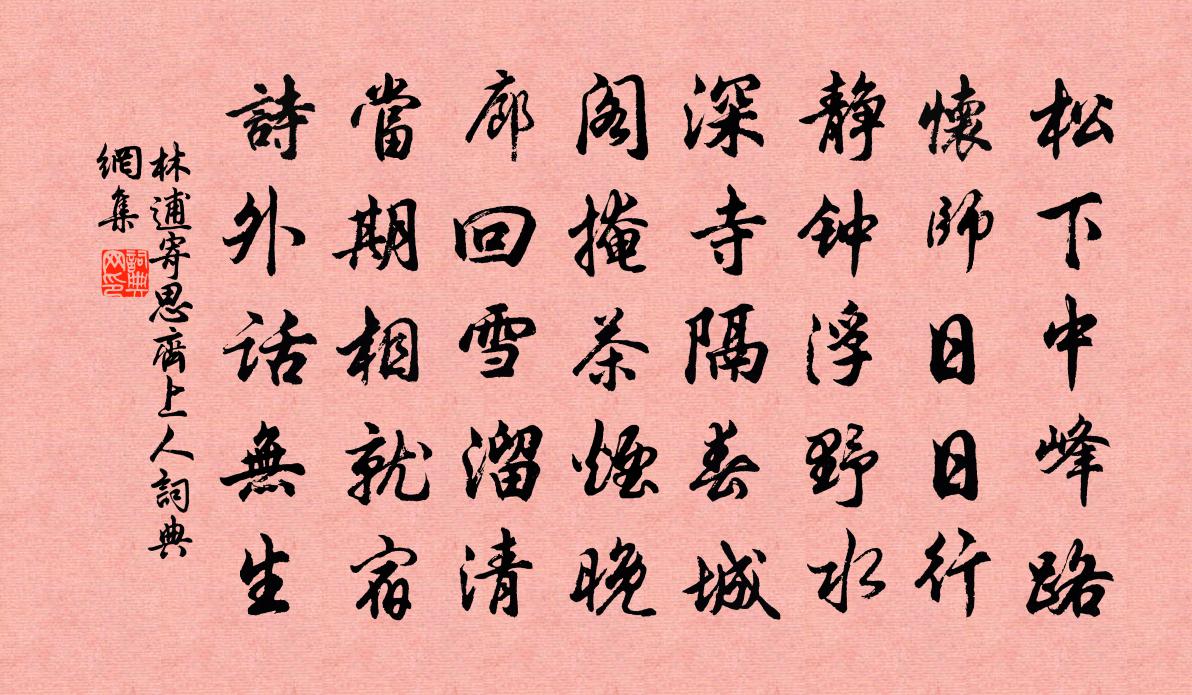 松下中峰路
懷師日日行
静钟浮野水
深寺隔春城
阁掩茶煙晚
廊回雪溜清
當期相就宿
詩外话無生
林逋寄思齊上人詞典
網集
詞典
网印